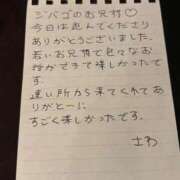 ジバゴのお兄様♡
今日は遊んでくださり
ありがとうございました。
若いお兄様で色々なお
話ができて楽しかったで
す。
遠い所から来てくれてあ
りがとーに
すごく楽しかったです。
さわ